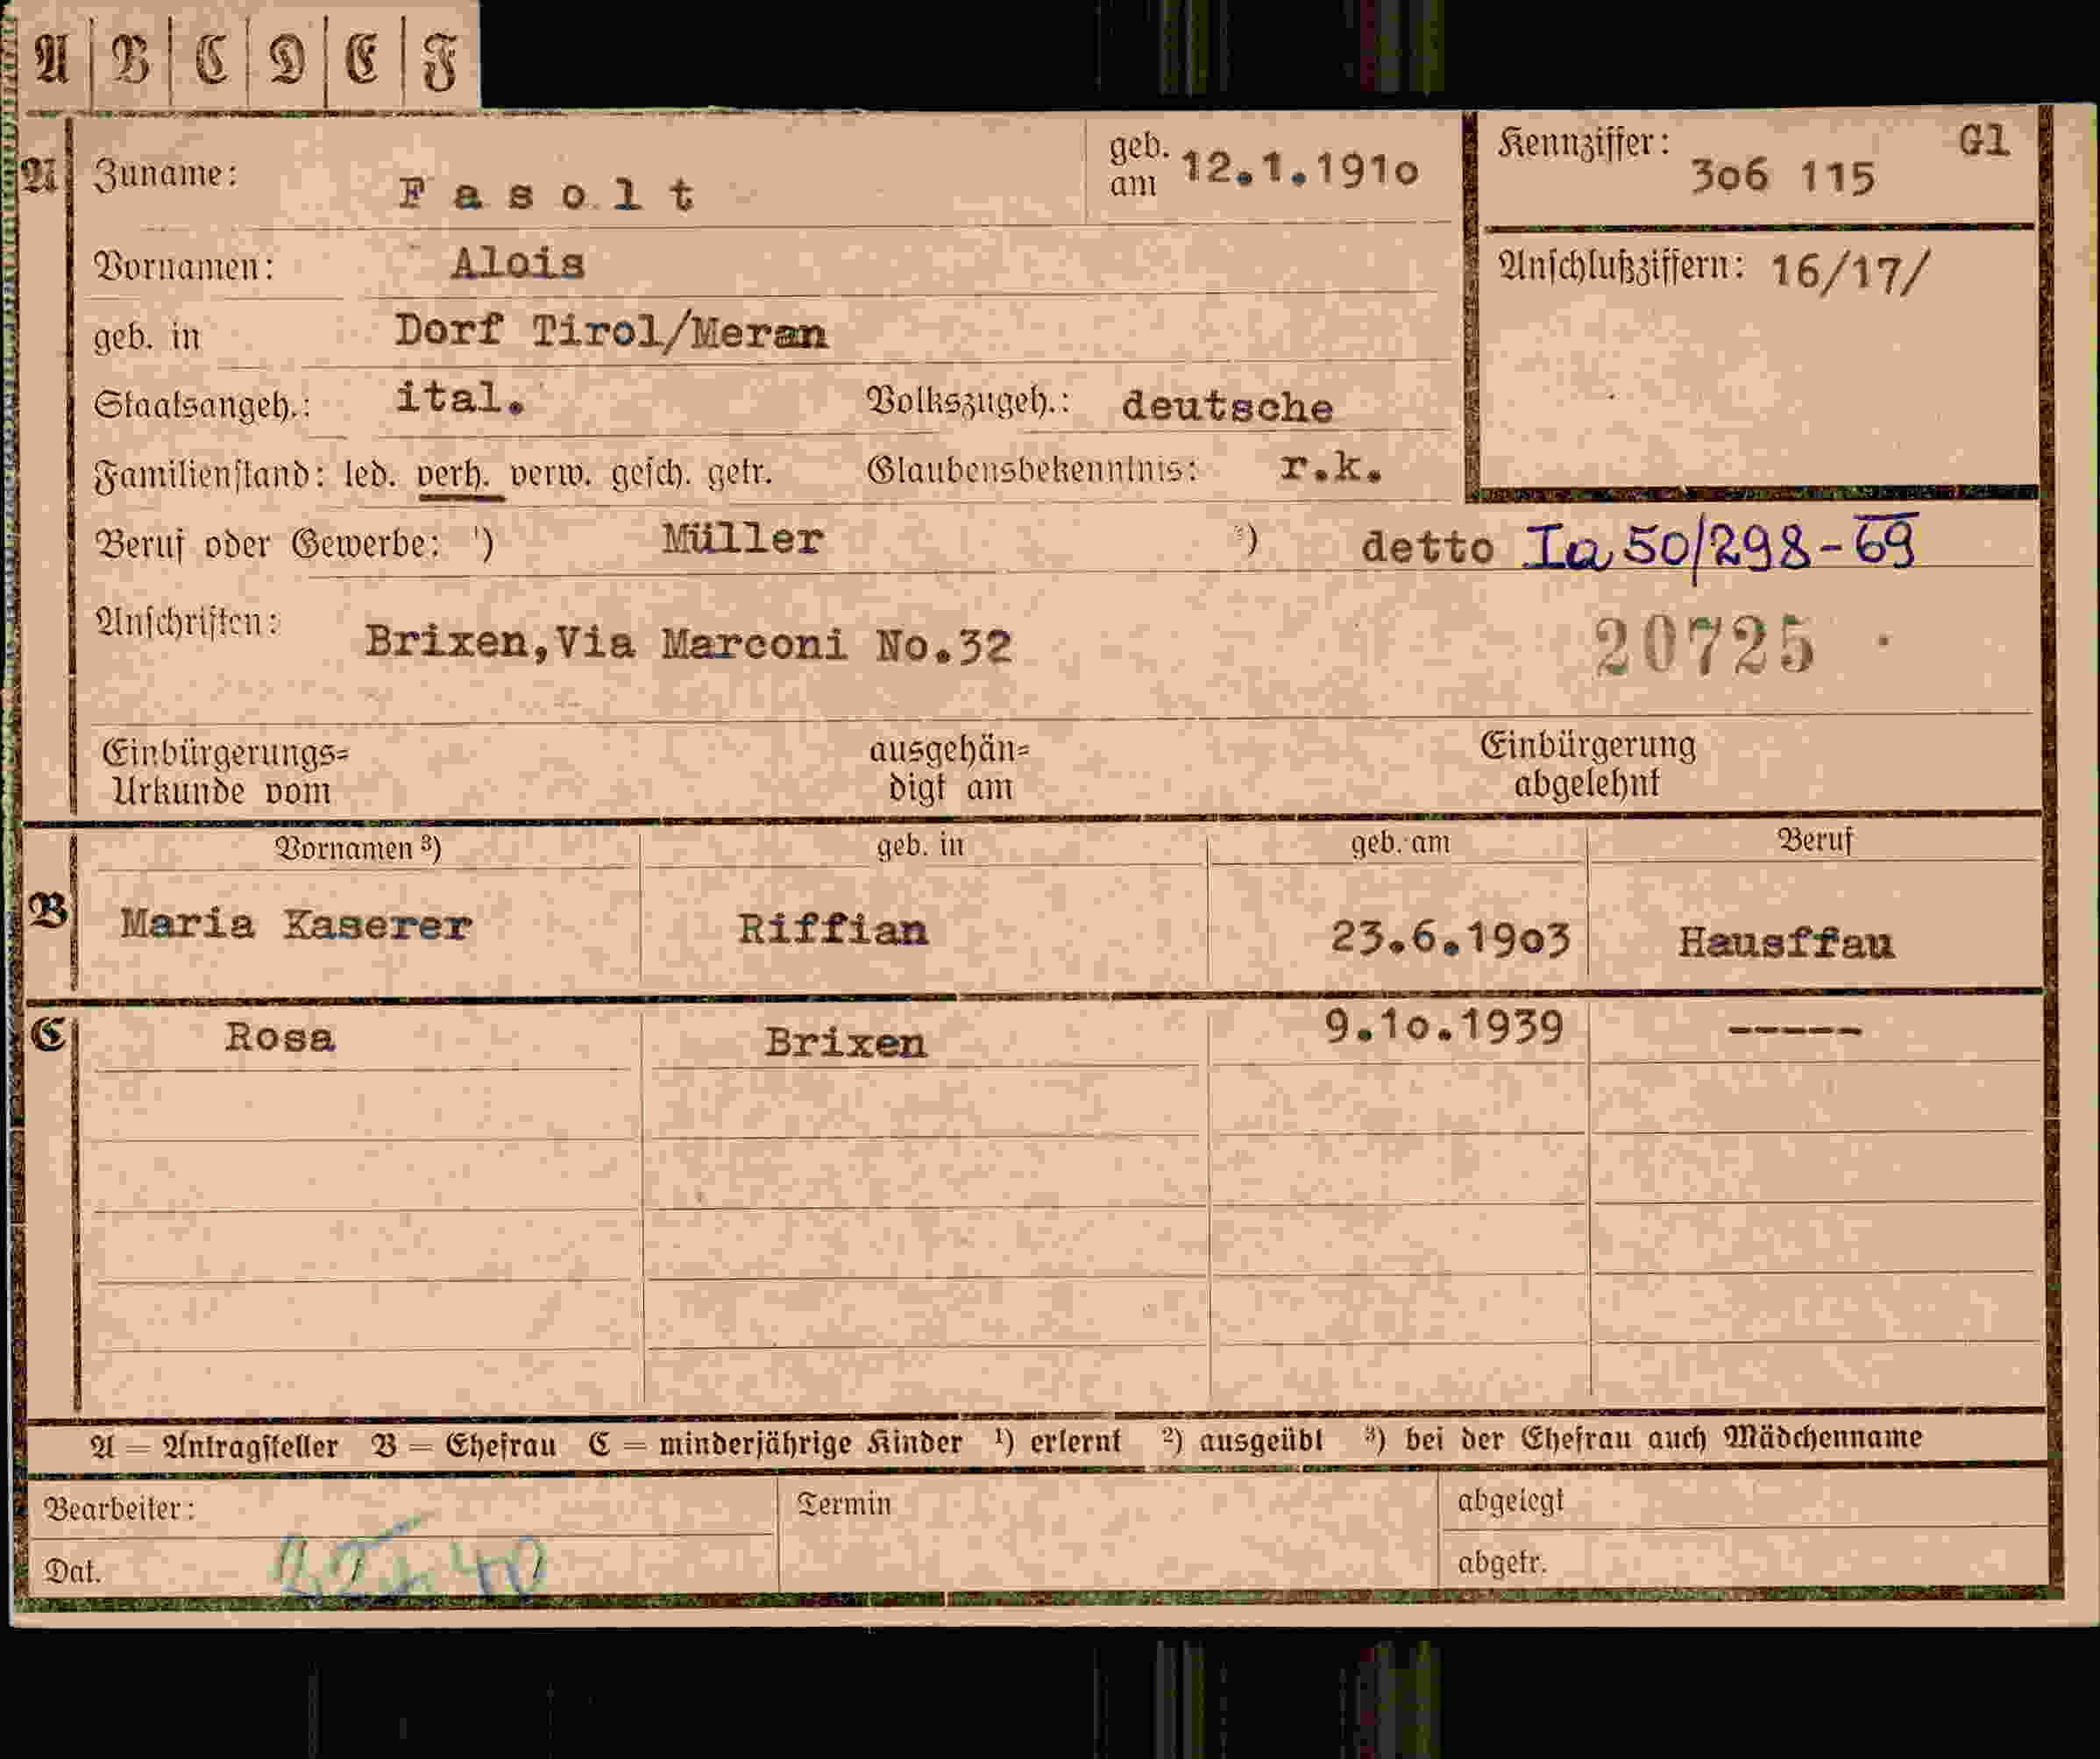 A B C D E F
A Zuname: Fasolt geb. am 12.1.1910 Kennziffer: 306 115 Gl
Vornamen: Alois Anschlußziffern: 16/17/
geb. in Dorf Tirol/Meran
Staatsangeh.: ital. Volkszugeh.: deutsche
Familienstand: led. verh. verw. gesch. getr. Glaubensbekenntnis: r.k.
Beruf oder Gewerbe: ¹) Müller ²) detto Ia 50/298-69
Anschriften: Brixen,Via Marconi No.32 20725
Einbürgerungs= ausgehän= Einbürgerung
Urkunde vom digt am abgelehnt
Vornamen ³) geb. in geb. am Beruf
B Maria Kaserer Riffian 23.6.1903 Hausffau
C Rosa Brixen 9.10.1939 -----
A = Antragsteller B = Ehefrau C = minderjährige Kinder ¹) erlernt ²) ausgeübt ³) bei der Ehefrau auch Mädchenname
Bearbeiter: Termin abgelegt
Dat. abgetr.